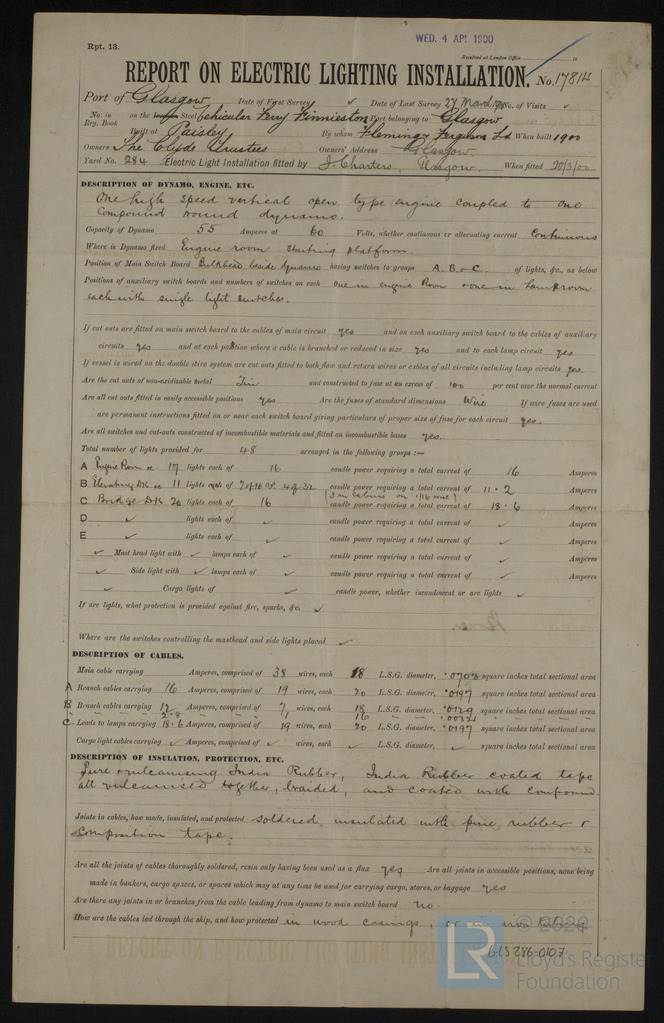 Rpt. 13.
WED. 4 APL 1900
Received at London Office
REPORT ON ELECTRIC LIGHTING INSTALLATION. No. 17814
Port of Glasgow Date of First Survey ✓ Date of Last Survey 27 March 1900 No. of Visits ✓
No. in Reg. Book on the Steel Vehicular Ferry Finnieston Port belonging to Glasgow
Built at Paisley By whom Fleming & Ferguson Ld When built 1900
Owners The Clyde Trustees Owners' Address Glasgow
Yard No. 284 Electric Light Installation fitted by J. Charters, Glasgow. When fitted 20/3/00
DESCRIPTION OF DYNAMO, ENGINE, ETC.
One high speed vertical open type engine coupled to one
compound wound dynamo.
Capacity of Dynamo 55 Amperes at 60 Volts, whether continuous or alternating current Continuous
Where is Dynamo fixed Engine room starting platform
Position of Main Switch Board Bulkhead beside dynamo having switches to groups A. B & C. of lights, &c., as below
Positions of auxiliary switch boards and numbers of switches on each one in engine Room & one in Lamproom
each with single light switches.
If cut outs are fitted on main switch board to the cables of main circuit yes and on each auxiliary switch board to the cables of auxiliary
circuits yes and at each position where a cable is branched or reduced in size yes and to each lamp circuit yes
If vessel is wired on the double wire system are cut outs fitted to both flow and return wires or cables of all circuits including lamp circuits yes
Are the cut outs of non-oxidizable metal Tin and constructed to fuse at an excess of 100 per cent over the normal current
Are all cut outs fitted in easily accessible positions yes Are the fuses of standard dimensions Wire If wire fuses are used
are permanent instructions fitted on or near each switch board giving particulars of proper size of fuse for each circuit yes.
Are all switches and cut-outs constructed of incombustible materials and fitted on incombustible bases yes.
Total number of lights provided for 48 arranged in the following groups :—
A Engine Room &c 17 lights each of 16 candle power requiring a total current of 16 Amperes
B Elevating Dk &c 11 lights each of 7 of 16 CP. 4 of 32 candle power requiring a total current of 11.2 Amperes
C Bridge Dk 20 lights each of 16 candle power requiring a total current of 18.6 Amperes
D ✓ lights each of ✓ candle power requiring a total current of ✓ Amperes
E ✓ lights each of ✓ candle power requiring a total current of ✓ Amperes
✓ Mast head light with ✓ lamps each of ✓ candle power requiring a total current of ✓ Amperes
✓ Side light with ✓ lamps each of ✓ candle power requiring a total current of ✓ Amperes
✓ Cargo lights of ✓ candle power, whether incandescent or arc lights ✓
If arc lights, what protection is provided against fire, sparks, &c. ✓
Where are the switches controlling the masthead and side lights placed ✓
DESCRIPTION OF CABLES.
Main cable carrying Amperes, comprised of 38 wires, each 18 L.S.G. diameter, .0702 square inches total sectional area
A Branch cables carrying 16 Amperes, comprised of 19 wires, each 20 L.S.G. diameter, .0197 square inches total sectional area
B Branch cables carrying 12 Amperes, comprised of 7 wires, each 18 L.S.G. diameter, .0129 square inches total sectional area
2.8 " 1 " 16 " .00321
C Leads to lamps carrying 18.6 Amperes, comprised of 19 wires, each 20 L.S.G. diameter, .0197 square inches total sectional area
Cargo light cables carrying ✓ Amperes, comprised of ✓ wires, each ✓ L.S.G. diameter, ✓ square inches total sectional area
DESCRIPTION OF INSULATION, PROTECTION, ETC.
Pure & vulcanising India Rubber, India Rubber coated tape
all vulcanised together, braided, and coated with compound.
Joints in cables, how made, insulated, and protected soldered, insulated with pure rubber &
composition tape.
Are all the joints of cables thoroughly soldered, resin only having been used as a flux yes Are all joints in accessible positions, none being
made in bunkers, cargo spaces, or spaces which may at any time be used for carrying cargo, stores, or baggage yes
Are there any joints in or branches from the cable leading from dynamo to main switch board no.
How are the cables led through the ship, and how protected in wood casings, or in iron tubing
GLS 286-0107
© 2020
LR
Lloyd's Register
Foundation